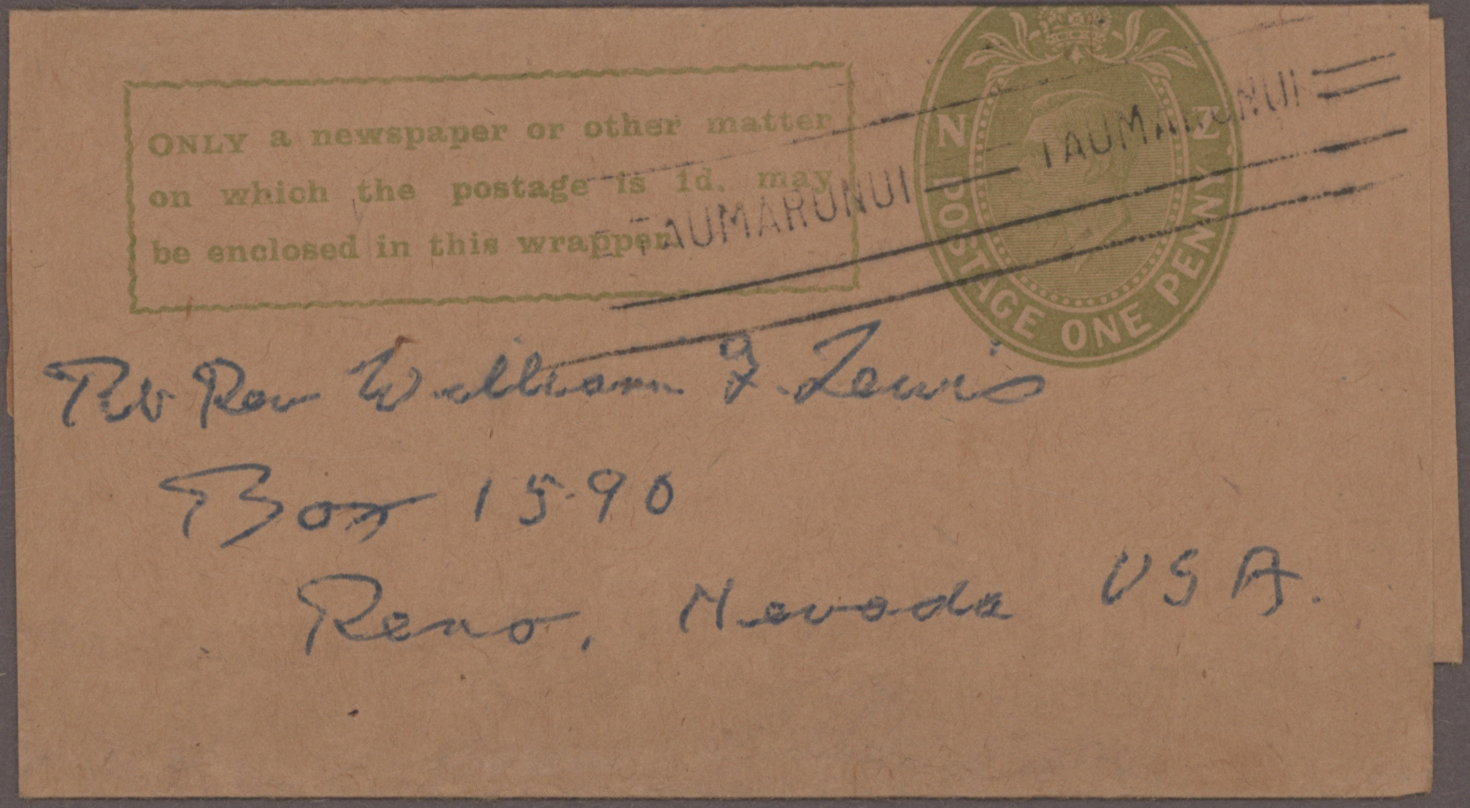 ONLY a newspaper or other matter
on which the postage is 1d. may
be enclosed in this wrapper.
N Z
POSTAGE ONE PENNY
TAUMARUNUI TAUMARUNUI
Rev William F. Lewis
Box 1590
Reno, Nevada USA.